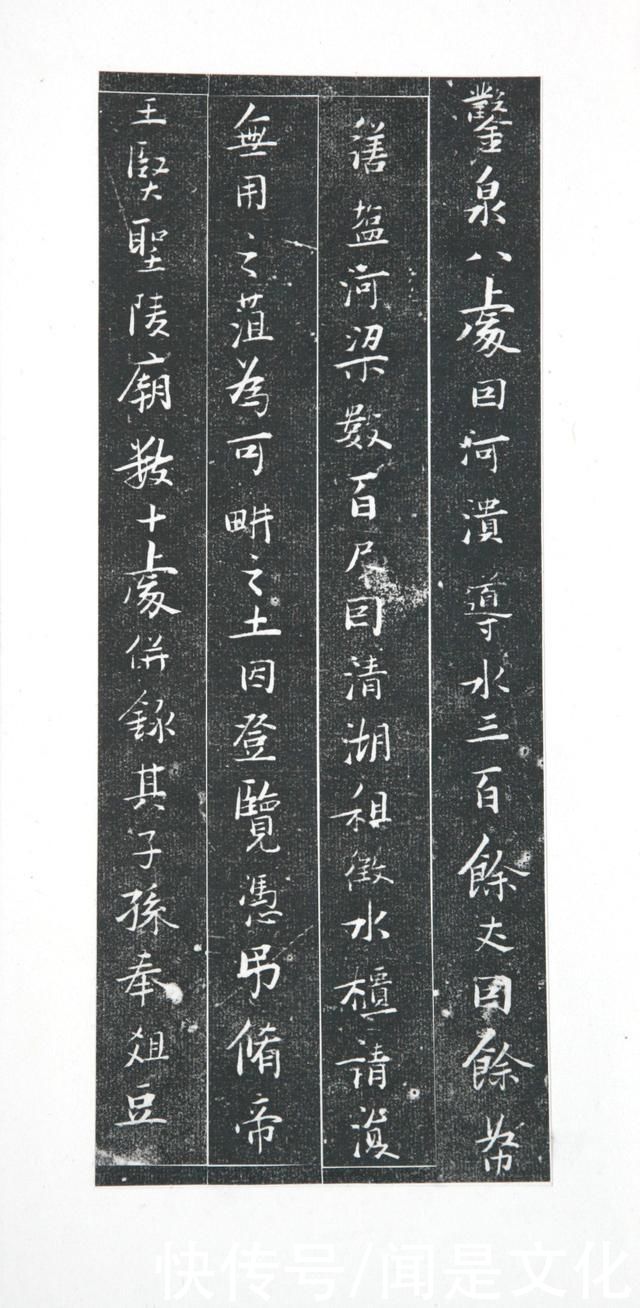 鑿泉八處囙河潰導水三百餘丈因餘帑
盐河梁數百尺囙清湖租徵水櫃請
無用之菹為可畊之土因登覽憑弔脩帝
王賢聖陵廟數十處併錄其子孫奉俎豆
快传号/闻是文化